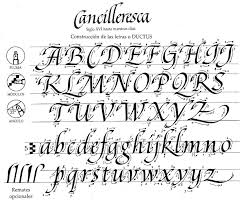 Cancilleresca
Siglo XVI hasta nuestros días
Construcción de las letras o DUCTUS
PLUMA
ABCDEFGHIJ
MÓDULOS
KLMNOPQRS
ÁNGULO
TUVWXYZ
abcdefghijklmno
pqrstuvwxyz
Remates
opcionales